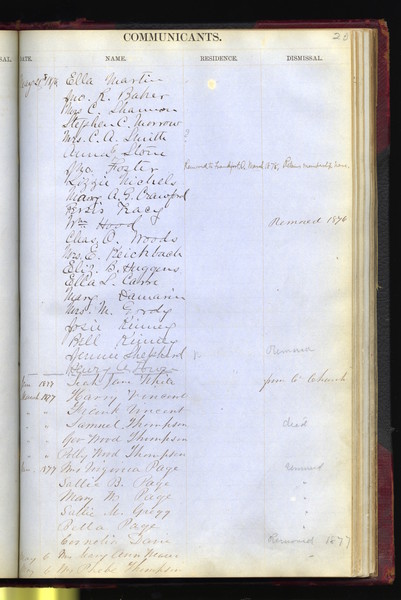 COMMUNICANTS. 28
DATE. NAME. RESIDENCE. DISMISSAL.
Ella Martin
Jno. R. Baker
Mrs C. Shannon
Stephen C. Morrow
Mrs. C. A. Smith
Anna E. Stone
Jno. Foster Removed to Frankfort, March 1878, Retains membership here
Lizzie Nichols
Mary A. G. Crawford
Tracy
Wm Hood Removed 1876
Chas. O. Woods
Mrs. E. Reichbach
Eliz. B. Huggins
Ella L. Carr
Mary
Mrs. M. Gordy
Josie Kinney
Bell Kinney
Jennie Shepherd Removed
Jane White to Church
March 1877 Harry Vincent
" " Frank Vincent
" " Samuel Thompson died
" " Geo Wood Thompson
" " Polly Wood Thompson
1877 Mrs Virginia Page removed
Sallie B. Page "
Mary W. Page "
Sallie M. Gregg "
Bella Page "
Cornelia Dare Removed 1877
6 Mrs Mary Ann "
6 Mrs Phebe Thompson